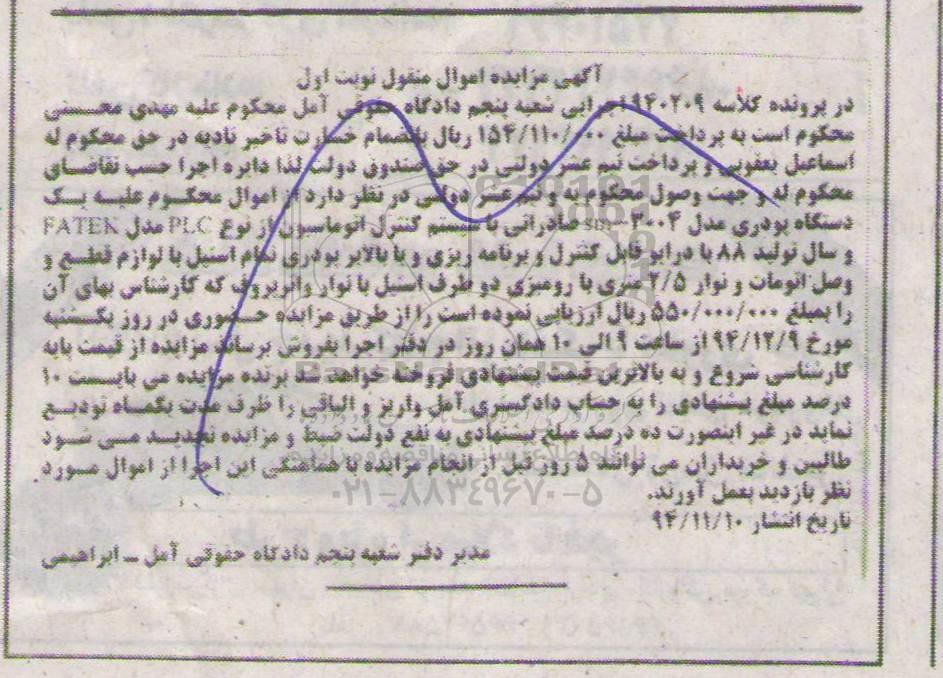 آگهی مزایده اموال منقول نوبت اول
در پرونده کلاسه ۹۴۰۲۰۹ اجرایی شعبه پنجم دادگاه حقوقی آمل محکوم علیه مهدی محسنی
محکوم است به پرداخت مبلغ ۱۵۴/۱۱۰/۰۰۰ ریال بانضمام خسارت تاخیر تادیه در حق محکوم له
اسماعیل یعقوبی و پرداخت نیم عشر دولتی در حق صندوق دولت لذا دایره اجرا حسب تقاضای
محکوم له و جهت وصول محکوم به و نیم عشر دولتی در نظر دارد از اموال محکوم علیه یک
دستگاه پودری مدل ۳۰۰۴ sm صادراتی با سیستم کنترل اتوماسیون از نوع PLC مدل FATEK
و سال تولید ۸۸ با درایو قابل کنترل و برنامه ریزی و با بالابر پودری تمام استیل با لوازم قطع و
وصل اتومات و نوار ۲/۵ متری با رومیزی دو طرف استیل با نوار واتر پروف که کارشناس بهای آن
را بمبلغ ۵۵۰/۰۰۰/۰۰۰ ریال ارزیابی نموده است را از طریق مزایده حضوری در روز یکشنبه
مورخ ۹۴/۱۲/۹ از ساعت ۹ الی ۱۰ همان روز در دفتر اجرا بفروش برساند مزایده از قیمت پایه
کارشناسی شروع و به بالاترین قیمت پیشنهادی فروخته خواهد شد برنده مزایده می بایست ۱۰
درصد مبلغ پیشنهادی را به حساب دادگستری آمل واریز و الباقی را ظرف مدت یکماه تودیع
نماید در غیر اینصورت ده درصد مبلغ پیشنهادی به نفع دولت ضبط و مزایده تجدید می شود
طالبین و خریداران می توانند ۵ روز قبل از انجام مزایده با هماهنگی این اجرا از اموال مورد
نظر بازدید بعمل آورند.
۰۲۱-۸۸۳۴۹۶۷۰-۵
تاریخ انتشار ۹۴/۱۱/۱۰
مدیر دفتر شعبه پنجم دادگاه حقوقی آمل ــ ابراهیمی